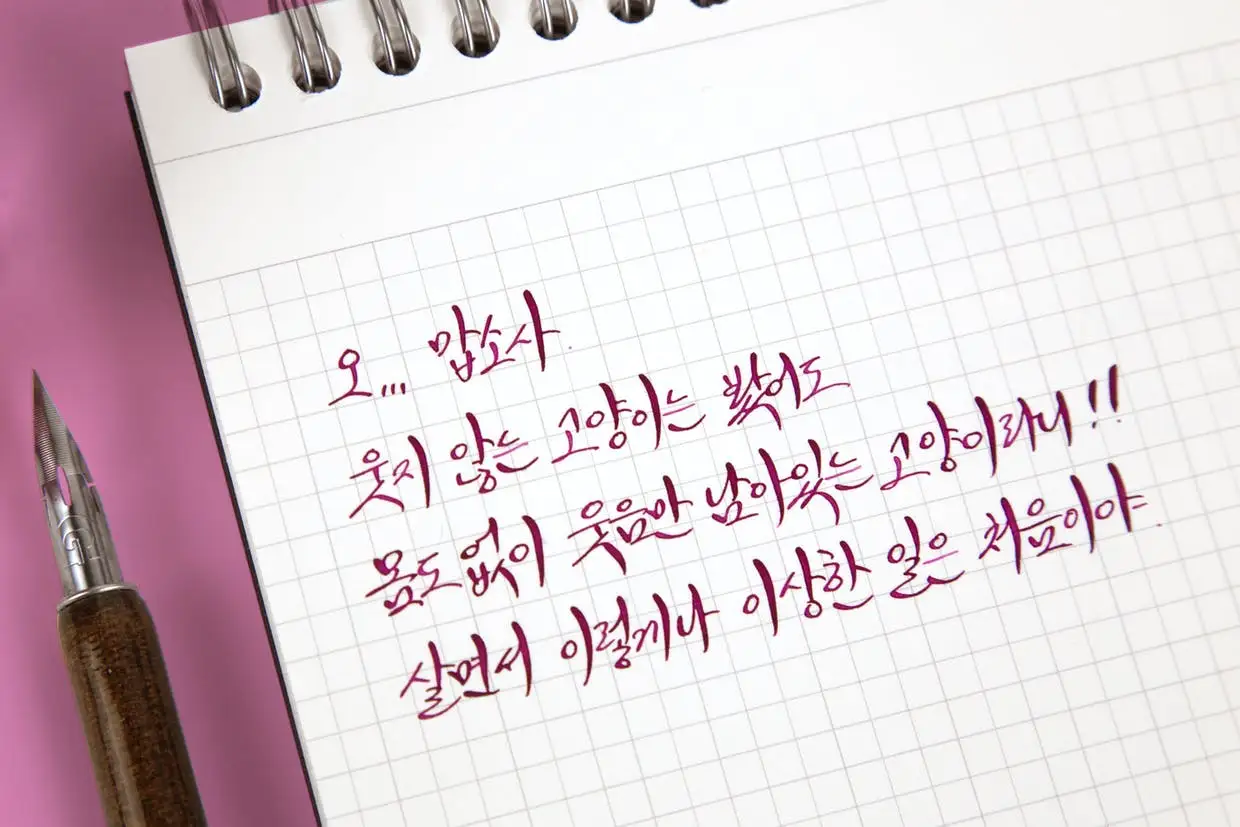 오... 맙소사
웃지 않는 고양이는 봤어도
몸도 없이 웃음만 남아있는 고양이라니!!
살면서 이렇게나 이상한 일은 처음이야.